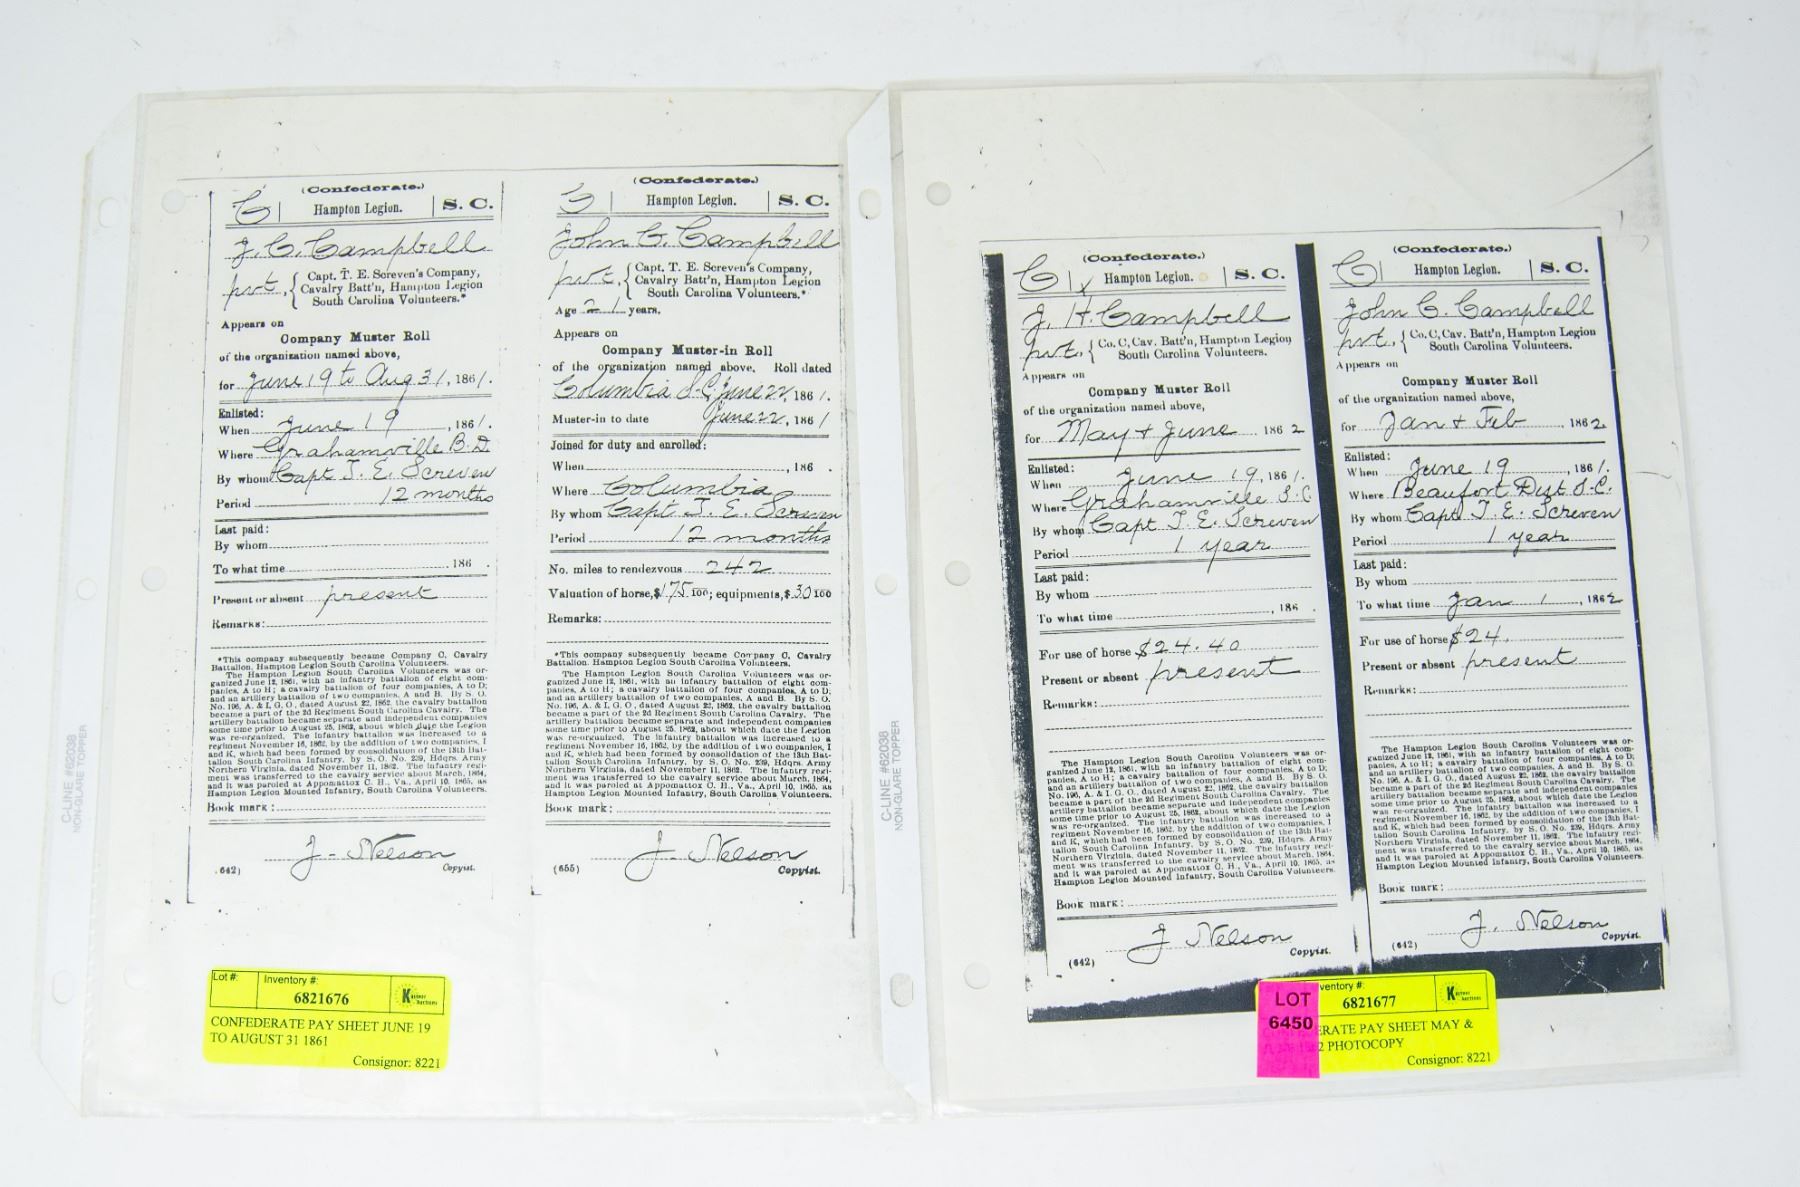 (Confederate.)
C Hampton Legion. S. C.
J. C. Campbell
pvt, Capt. T. E. Screven's Company,
Cavalry Batt'n, Hampton Legion
South Carolina Volunteers.*
Appears on
Company Muster Roll
of the organization named above,
for June 19 to Aug 31, 1861.
Enlisted:
When June 19, 1861.
Where Grahamville B. D.
By whom Capt T. E. Screven
Period 12 months
Last paid:
By whom
To what time , 186 .
Present or absent present
Remarks:
*This company subsequently became Company C, Cavalry
Battalion, Hampton Legion South Carolina Volunteers.
The Hampton Legion South Carolina Volunteers was or-
ganized June 12, 1861, with an infantry battalion of eight com-
panies, A to H; a cavalry battalion of four companies, A to D;
and an artillery battalion of two companies, A and B. By S. O.
No. 196, A. & I. G. O., dated August 22, 1862, the cavalry battalion
became a part of the 2d Regiment South Carolina Cavalry. The
artillery battalion became separate and independent companies
some time prior to August 25, 1862, about which date the Legion
was re-organized. The infantry battalion was increased to a
regiment November 16, 1862, by the addition of two companies, I
and K, which had been formed by consolidation of the 13th Bat-
talion South Carolina Infantry, by S. O. No. 239, Hdqrs. Army
Northern Virginia, dated November 11, 1862. The infantry regi-
ment was transferred to the cavalry service about March, 1864,
and it was paroled at Appomattox C. H., Va., April 10, 1865, as
Hampton Legion Mounted Infantry, South Carolina Volunteers.
Book mark:
J. Nelson
642) Copyist.
(Confederate.)
Hampton Legion. S. C.
John C. Campbell
pvt, Capt. T. E. Screven's Company,
Cavalry Batt'n, Hampton Legion
South Carolina Volunteers.*
Age 21 years.
Appears on
Company Muster-in Roll
of the organization named above. Roll dated
Columbia S. C. June 22, 1861.
Muster-in to date June 22, 1861
Joined for duty and enrolled:
When , 186 .
Where Columbia
By whom Capt. T. E. Screven
Period 12 months
No. miles to rendezvous 242
Valuation of horse, $175 100; equipments, $30 100
Remarks:
*This company subsequently became Company C, Cavalry
Battalion, Hampton Legion South Carolina Volunteers.
The Hampton Legion South Carolina Volunteers was or-
ganized June 12, 1861, with an infantry battalion of eight com-
panies, A to H; a cavalry battalion of four companies, A to D;
and an artillery battalion of two companies, A and B. By S. O.
No. 196, A. & I. G. O., dated August 22, 1862, the cavalry battalion
became a part of the 2d Regiment South Carolina Cavalry. The
artillery battalion became separate and independent companies
some time prior to August 25, 1862, about which date the Legion
was re-organized. The infantry battalion was increased to a
regiment November 16, 1862, by the addition of two companies, I
and K, which had been formed by consolidation of the 13th Bat-
talion South Carolina Infantry, by S. O. No. 239, Hdqrs. Army
Northern Virginia, dated November 11, 1862. The infantry regi-
ment was transferred to the cavalry service about March, 1864,
and it was paroled at Appomattox C. H., Va., April 10, 1865, as
Hampton Legion Mounted Infantry, South Carolina Volunteers.
Book mark:
J. Nelson
(655) Copyist.
(Confederate.)
C Hampton Legion. S. C.
J. H. Campbell
pvt, Co. C, Cav. Batt'n, Hampton Legion
South Carolina Volunteers.
Appears on
Company Muster Roll
of the organization named above,
for May & June 1862
Enlisted:
When June 19, 1861.
Where Grahamville S. C
By whom Capt T. E. Screven
Period 1 year
Last paid:
By whom
To what time , 186 .
For use of horse $24.40
Present or absent present
Remarks:
The Hampton Legion South Carolina Volunteers was or-
ganized June 12, 1861, with an infantry battalion of eight com-
panies, A to H; a cavalry battalion of four companies, A to D;
and an artillery battalion of two companies, A and B. By S. O.
No. 196, A. & I. G. O., dated August 22, 1862, the cavalry battalion
became a part of the 2d Regiment South Carolina Cavalry. The
artillery battalion became separate and independent companies
some time prior to August 25, 1862, about which date the Legion
was re-organized. The infantry battalion was increased to a
regiment November 16, 1862, by the addition of two companies, I
and K, which had been formed by consolidation of the 13th Bat-
talion South Carolina Infantry, by S. O. No. 239, Hdqrs. Army
Northern Virginia, dated November 11, 1862. The infantry regi-
ment was transferred to the cavalry service about March, 1864,
and it was paroled at Appomattox C. H., Va., April 10, 1865, as
Hampton Legion Mounted Infantry, South Carolina Volunteers.
Book mark:
J Nelson
(642) Copyist.
(Confederate.)
C Hampton Legion. S. C.
John C. Campbell
pvt., Co. C, Cav. Batt'n, Hampton Legion
South Carolina Volunteers.
Appears on
Company Muster Roll
of the organization named above,
for Jan & Feb , 1862.
Enlisted:
When June 19, 1861.
Where Beaufort Dist S. C.
By whom Capt T. E. Screven
Period 1 year
Last paid:
By whom
To what time Jan 1, 1862
For use of horse $24.
Present or absent present
Remarks:
The Hampton Legion South Carolina Volunteers was or-
ganized June 12, 1861, with an infantry battalion of eight com-
panies, A to H; a cavalry battalion of four companies, A to D;
and an artillery battalion of two companies, A and B. By S. O.
No. 196, A. & I. G. O., dated August 22, 1862, the cavalry battalion
became a part of the 2d Regiment South Carolina Cavalry. The
artillery battalion became separate and independent companies
some time prior to August 25, 1862, about which date the Legion
was re-organized. The infantry battalion was increased to a
regiment November 16, 1862, by the addition of two companies, I
and K, which had been formed by consolidation of the 13th Bat-
talion South Carolina Infantry, by S. O. No. 239, Hdqrs. Army
Northern Virginia, dated November 11, 1862. The infantry regi-
ment was transferred to the cavalry service about March, 1864,
and it was paroled at Appomattox C. H., Va., April 10, 1865, as
Hampton Legion Mounted Infantry, South Carolina Volunteers.
Book mark:
J. Nelson
(642) Copyist.
C-LINE #62038
NON-GLARE TOPPER
C-LINE #62038
NON-GLARE TOPPER
Lot #: Inventory #:
6821676
CONFEDERATE PAY SHEET JUNE 19
TO AUGUST 31 1861
Consignor: 8221
LOT
6450
ventory #:
6821677
ERATE PAY SHEET MAY &
2 PHOTOCOPY
Consignor: 8221